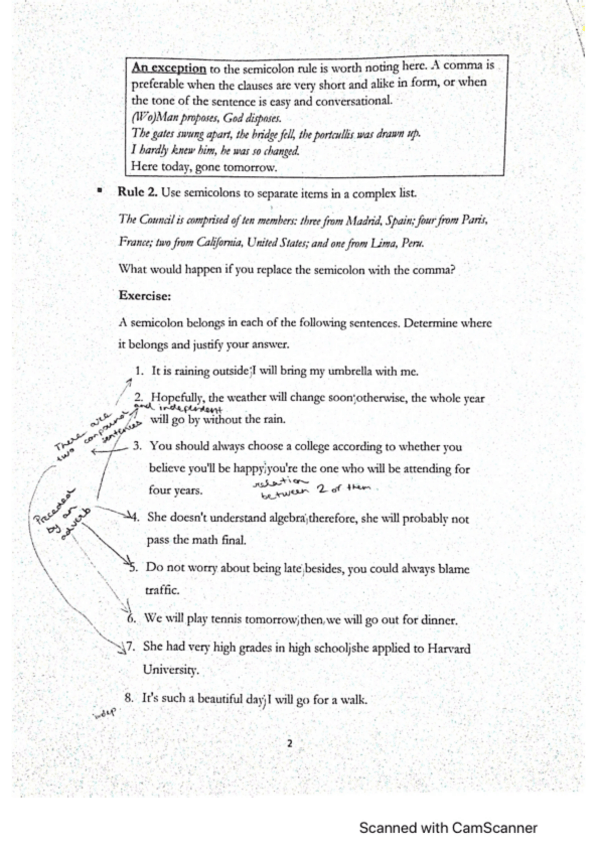 An exception to the semicolon rule is worth noting here. A comma is
preferable when the clauses are very short and alike in form, or when
the tone of the sentence is easy and conversational.
(Wo)Man proposes, God disposes.
The gates swung apart, the bridge fell, the portcullis was drawn up.
I hardly knew him, he was so changed.
Here today, gone tomorrow.
▪ Rule 2. Use semicolons to separate items in a complex list.
The Council is comprised of ten members: three from Madrid, Spain; four from Paris,
France; two from California, United States; and one from Lima, Peru.
What would happen if you replace the semicolon with the comma?
Exercise:
A semicolon belongs in each of the following sentences. Determine where
it belongs and justify your answer.
1. It is raining outside;I will bring my umbrella with me.
2. Hopefully, the weather will change soon;otherwise, the whole year
and independent
will go by without the rain.
There are
two compound
sentences
3. You should always choose a college according to whether you
believe you'll be happy;you're the one who will be attending for
four years.
relation
between 2 of them.
Preceded
by an
adverb
4. She doesn't understand algebra;therefore, she will probably not
pass the math final.
5. Do not worry about being late;besides, you could always blame
traffic.
6. We will play tennis tomorrow;then,we will go out for dinner.
7. She had very high grades in high school;she applied to Harvard
University.
8. It's such a beautiful day;I will go for a walk.
indep.
2
Scanned with CamScanner